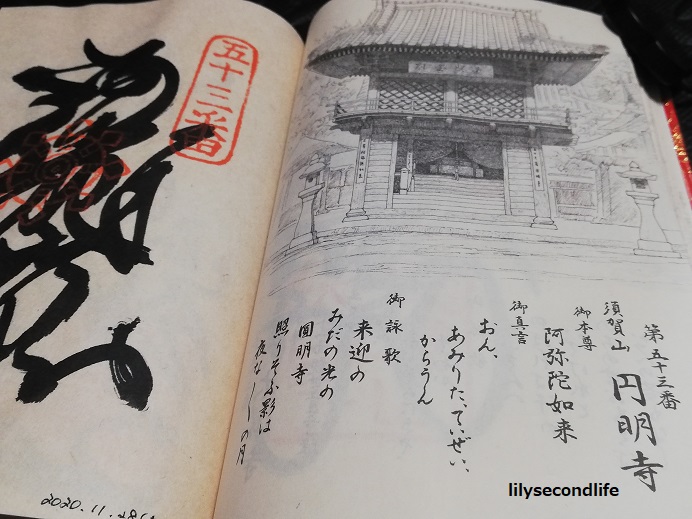 第五十三番
須賀山 円明寺
御本尊
阿弥陀如来
御真言
おん、
あみりた、ていぜい、
からうん
御詠歌
来迎の
みだの光の
圓明寺
照りそふ影は
夜な〱の月
五十三番
2020.11.28
lilysecondlife